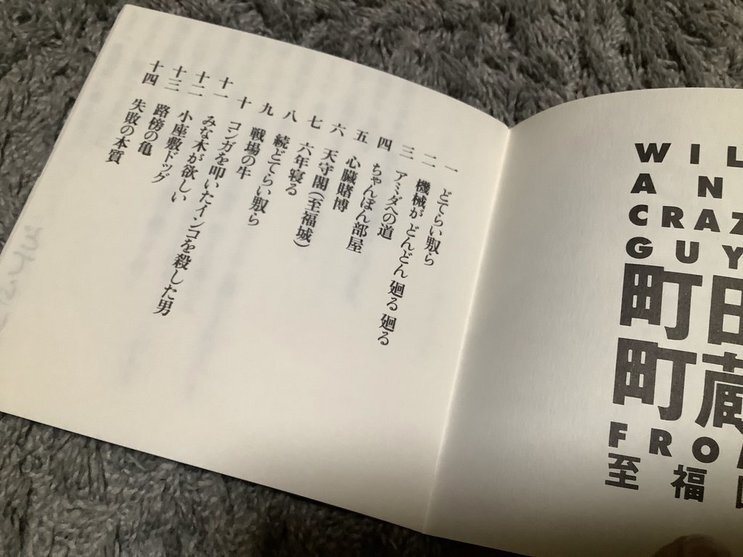 一 どてらい奴ら
二 機械がどんどん廻る廻る
三 アミダへの道
四 ちゃんぽん部屋
五 心臓賭博
六 天守閣(至福城)
七 六年寝る
八 続どてらい奴ら
九 戦場の牛
十 コンガを叩いたインコを殺した男
十一 みな木が欲しい
十二 小座敷ドッグ
十三 路傍の亀
十四 失敗の本質
WIL
AN
CRAZ
GUY
町田
町蔵
FRO
至福